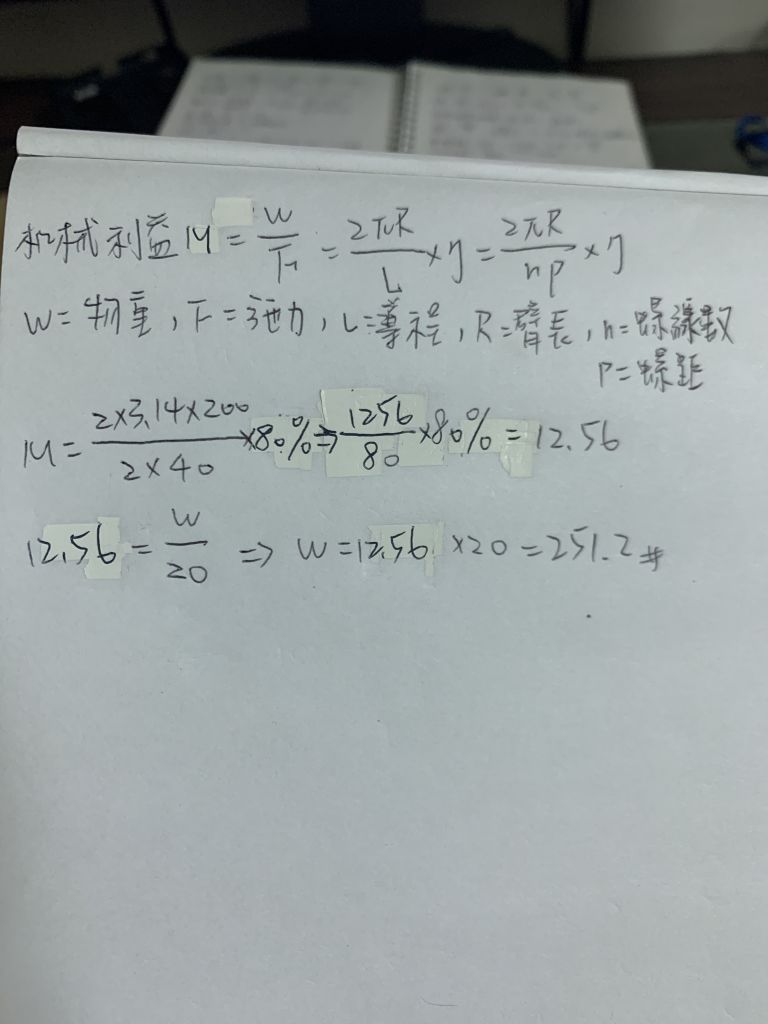 机械利益 M = W/F = 2πR/L × η = 2πR/np × η
W = 物重, F = 施力, L = 導程, R = 臂長, n = 螺線数
P = 螺距
M = 2×3.14×200/2×40 ×80% ⇒ 1256/80 ×80% = 12.56
12.56 = W/20 ⇒ W = 12.56 ×20 = 251.2 #